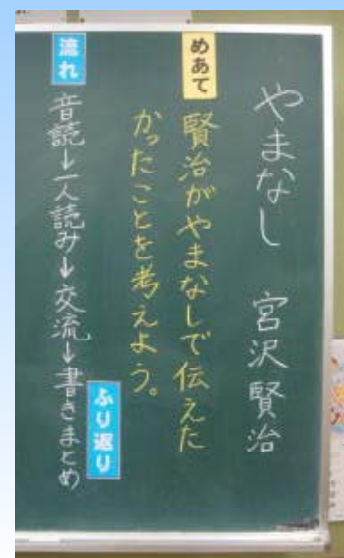 やまなし　宮沢賢治
めあて
賢治がやまなしで伝えた
かったことを考えよう。
流れ
音読→一人読み→交流→書きまとめ
ふり返り